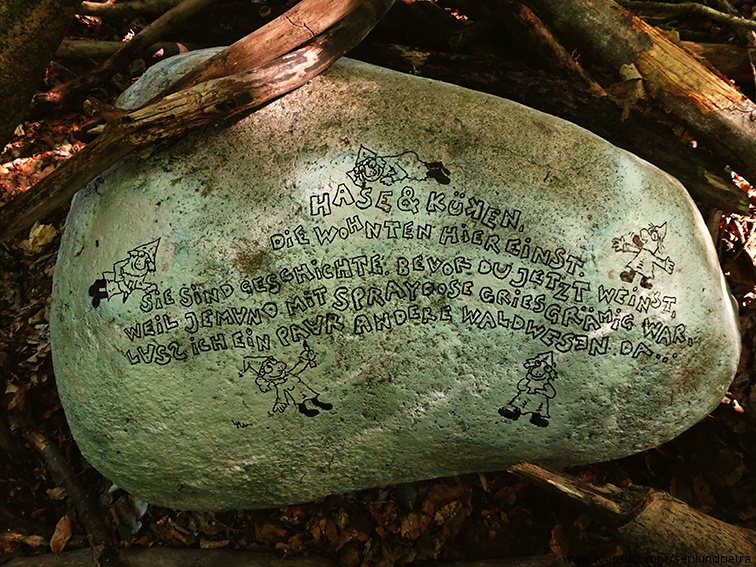 HASE & KÜKEN,
DIE WOHNTEN HIER EINST.
SIE SIND GESCHICHTE. BEVOR DU JETZT WEINST,
WEIL JEMAND MIT SPRAYDOSE GRIESGRÄMIG WAR,
LASS ICH EIN PAAR ANDERE WALDWESEN DA...
www.toonsup.com/seplundpetra